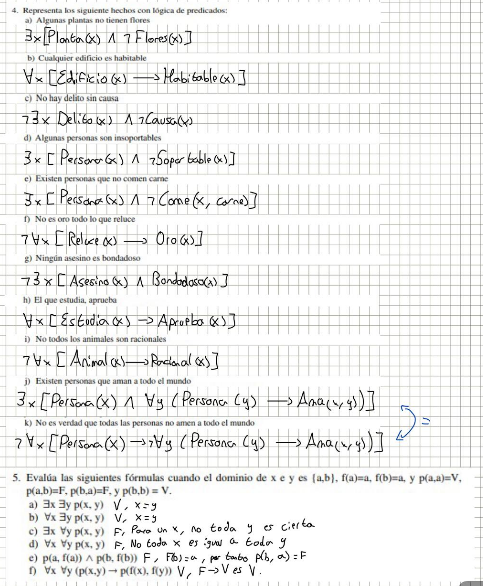 4. Representa los siguiente hechos con lógica de predicados:
a) Algunas plantas no tienen flores
∃x[Planta(x) ∧ ¬Flores(x)]
b) Cualquier edificio es habitable
∀x [Edificio(x) → Habitable(x)]
c) No hay delito sin causa
¬∃x Delito(x) ∧ ¬Causa(x)
d) Algunas personas son insoportables
∃x [Persona(x) ∧ ¬Soportable(x)]
e) Existen personas que no comen carne
∃x [Persona(x) ∧ ¬Come(x, carne)]
f) No es oro todo lo que reluce
¬∀x [Reluce(x) → Oro(x)]
g) Ningún asesino es bondadoso
¬∃x [Asesino(x) ∧ Bondadoso(x)]
h) El que estudia, aprueba
∀x [Estudia(x) → Aprueba(x)]
i) No todos los animales son racionales
¬∀x [Animal(x) → Racional(x)]
j) Existen personas que aman a todo el mundo
∃x [Persona(x) ∧ ∀y (Persona(y) → Ama(x,y))]
=
k) No es verdad que todas las personas no amen a todo el mundo
¬∀x [Persona(x) → ¬∀y (Persona(y) → Ama(x,y))]
5. Evalúa las siguientes fórmulas cuando el dominio de x e y es {a,b}, f(a)=a, f(b)=a, y p(a,a)=V,
p(a,b)=F, p(b,a)=F, y p(b,b) = V.
a) ∃x ∃y p(x, y) V, x=y
b) ∀x ∃y p(x, y) V, x=y
c) ∃x ∀y p(x, y) F, Para un x, no toda y es cierta
d) ∀x ∀y p(x, y) F, No toda x es igual a toda y
e) p(a, f(a)) ∧ p(b, f(b)) F, F(b)=a, por tanto p(b,a)=F
f) ∀x ∀y (p(x,y) → p(f(x), f(y)) V, F→V es V.